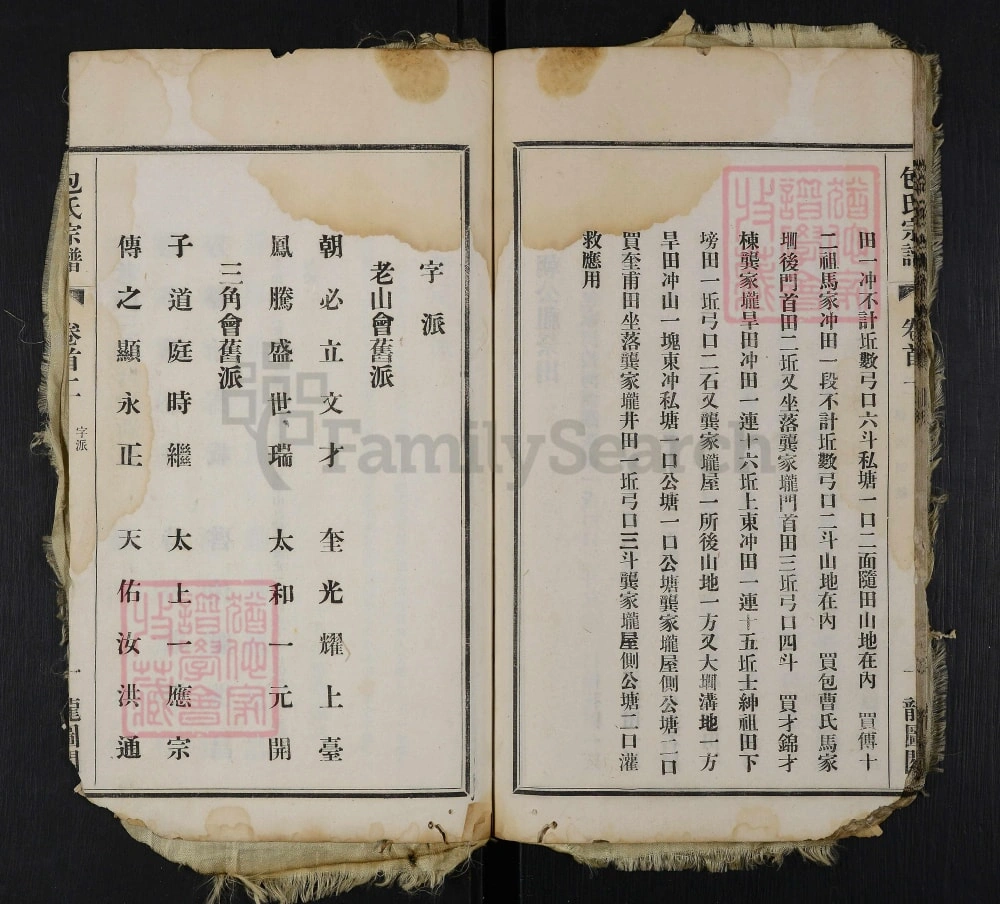 包氏宗譜
卷首一
龍圖閣
田一冲不計坵數弓口六斗私塘一口二面隨田山地在內　買傅十
二祖馬家冲田一段不計坵數弓口二斗山地在內　買包曹氏馬家
堋後門首田二坵又坐落龔家壠門首田三坵弓口四斗　買才錦才
棟龔家壠旱田冲田一連十六坵上東冲田一連十五坵士紳祖田下
塝田一坵弓口二石又龔家壠屋一所後山地一方又大堋溝地一方
旱田冲山一塊東冲私塘一口公塘一口公塘龔家壠屋側公塘二口
買奎甫田坐落龔家壠井田一坵弓口三斗龔家壠屋側公塘二口灌
救應用
字派
老山會舊派
朝必立文才　奎光耀上臺
鳳騰盛世瑞　太和一元開
三角會舊派
子道庭時繼　太上一應宗
傳之顯永正　天佑汝洪通
包氏宗譜
卷首一
字派
一
龍圖閣
猶他家譜學會收藏
猶他家譜學會收藏
FamilySearch